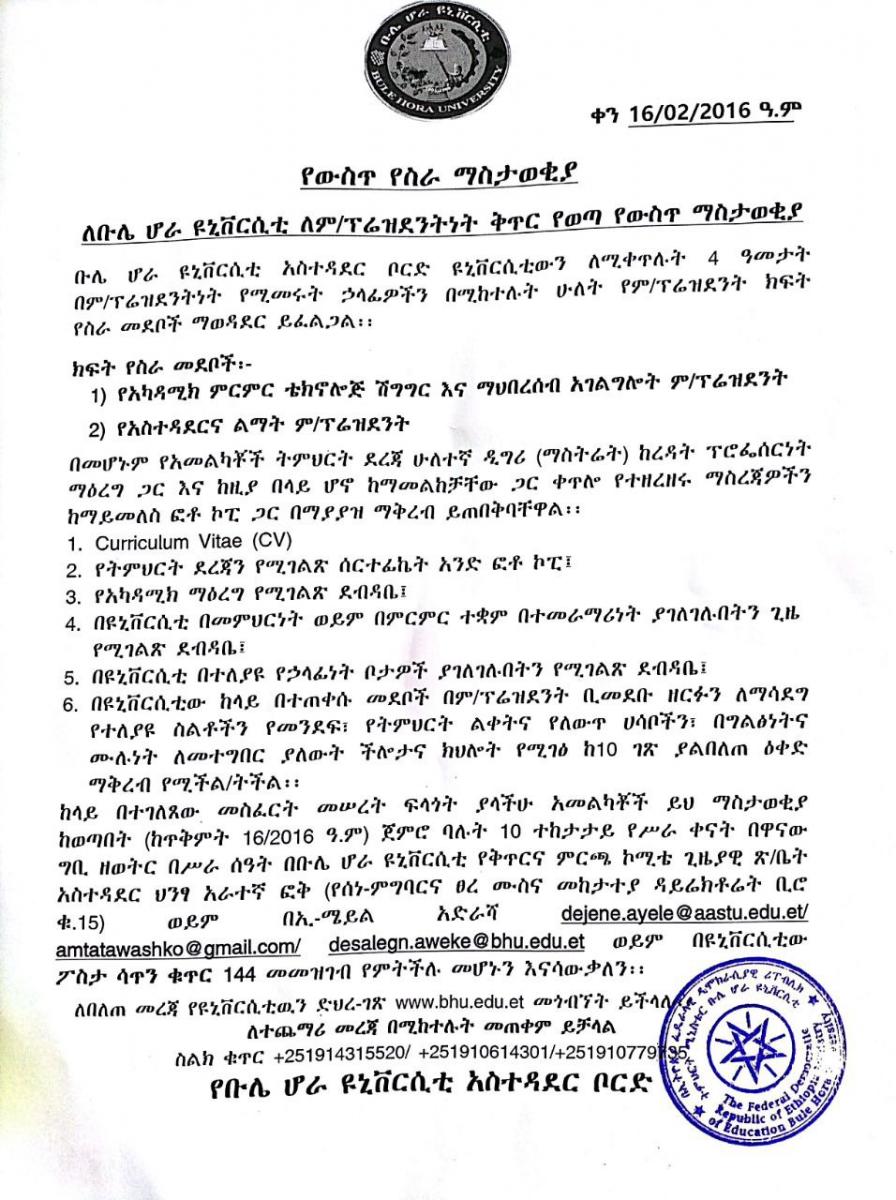 ቡሌ ሆራ ዩኒቨርሲቲ
BULE HORA UNIVERSITY
ቀን 16/02/2016 ዓ.ም
የውስጥ የስራ ማስታወቂያ
ለቡሌ ሆራ ዩኒቨርሲቲ ለም/ፕሬዝደንትነት ቅጥር የወጣ የውስጥ ማስታወቂያ
ቡሌ ሆራ ዩኒቨርሲቲ አስተዳደር ቦርድ ዩኒቨርሲቲውን ለሚቀጥሉት 4 ዓመታት
በም/ፕሬዝደንትነት የሚመሩት ኃላፊዎችን በሚከተሉት ሁለት የም/ፕሬዝደንት ክፍት
የስራ መደቦች ማወዳደር ይፈልጋል፡፡
ክፍት የስራ መደቦች፡-
1) የአካዳሚክ ምርምር ቴክኖሎጅ ሽግግር እና ማህበረሰብ አገልግሎት ም/ፕሬዝደንት
2) የአስተዳደርና ልማት ም/ፕሬዝደንት
በመሆኑም የአመልካቾች ትምህርት ደረጃ ሁለተኛ ዲግሪ (ማስትሬት) ከረዳት ፕሮፌሰርነት
ማዕረግ ጋር እና ከዚያ በላይ ሆኖ ከማመልከቻቸው ጋር ቀጥሎ የተዘረዘሩ ማስረጃዎችን
ከማይመለስ ፎቶ ኮፒ ጋር በማያያዝ ማቅረብ ይጠበቅባቸዋል፡፡
1. Curriculum Vitae (CV)
2. የትምህርት ደረጃን የሚገልጽ ሰርተፊኬት አንድ ፎቶ ኮፒ፤
3. የአካዳሚክ ማዕረግ የሚገልጽ ደብዳቤ፤
4. በዩኒቨርሲቲ በመምህርነት ወይም በምርምር ተቋም በተመራማሪነት ያገለገሉበትን ጊዜ
የሚገልጽ ደብዳቤ፤
5. በዩኒቨርሲቲ በተለያዩ የኃላፊነት ቦታዎች ያገለገሉበትን የሚገልጽ ደብዳቤ፤
6. በዩኒቨርሲቲው ከላይ በተጠቀሱ መደቦች በም/ፕሬዝደንት ቢመደቡ ዘርፉን ለማሳደግ
የተለያዩ ስልቶችን የመንደፍ፣ የትምህርት ልቀትና የለውጥ ሀሳቦችን፣ በግልፅነትና
ሙሉነት ለመተግበር ያለውት ችሎታና ክህሎት የሚገፅ ከ10 ገጽ ያልበለጠ ዕቀድ
ማቅረብ የሚችል/ትችል፡፡
ከላይ በተገለጸው መስፈርት መሠረት ፍላጎት ያላችሁ አመልካቾች ይህ ማስታወቂያ
ከወጣበት (ከጥቅምት 16/2016 ዓ.ም) ጀምሮ ባሉት 10 ተከታታይ የሥራ ቀናት በዋናው
ግቢ ዘወትር በሥራ ሰዓት በቡሌ ሆራ ዩኒቨርሲቲ የቅጥርና ምርጫ ኮሚቴ ጊዜያዊ ጽ/ቤት
አስተዳደር ህንፃ አራተኛ ፎቅ (የሰነ-ምግባርና ፀረ ሙስና መከታተያ ዳይሬክቶሬት ቢሮ
ቁ.15) ወይም በኢ-ሜይል አድራሻ dejene.ayele@aastu.edu.et/
amtatawashko@gmail.com/ desalegn.aweke@bhu.edu.et ወይም በዩኒቨርሲቲው
ፖስታ ሳጥን ቁጥር 144 መመዝገብ የምትችሉ መሆኑን እናሳውቃለን፡፡
ለበለጠ መረጃ የዩኒቨርሲቲዉን ድህረ-ገጽ www.bhu.edu.et መጎብኘት ይችላሉ
ለተጨማሪ መረጃ በሚከተሉት መጠቀም ይቻላል
ስልክ ቁጥር +251914315520/ +251910614301/+251910779735
የቡሌ ሆራ ዩኒቨርሲቲ አስተዳደር ቦርድ
The Federal Democratic
Republic of Ethiopia
of Education Bule Hora